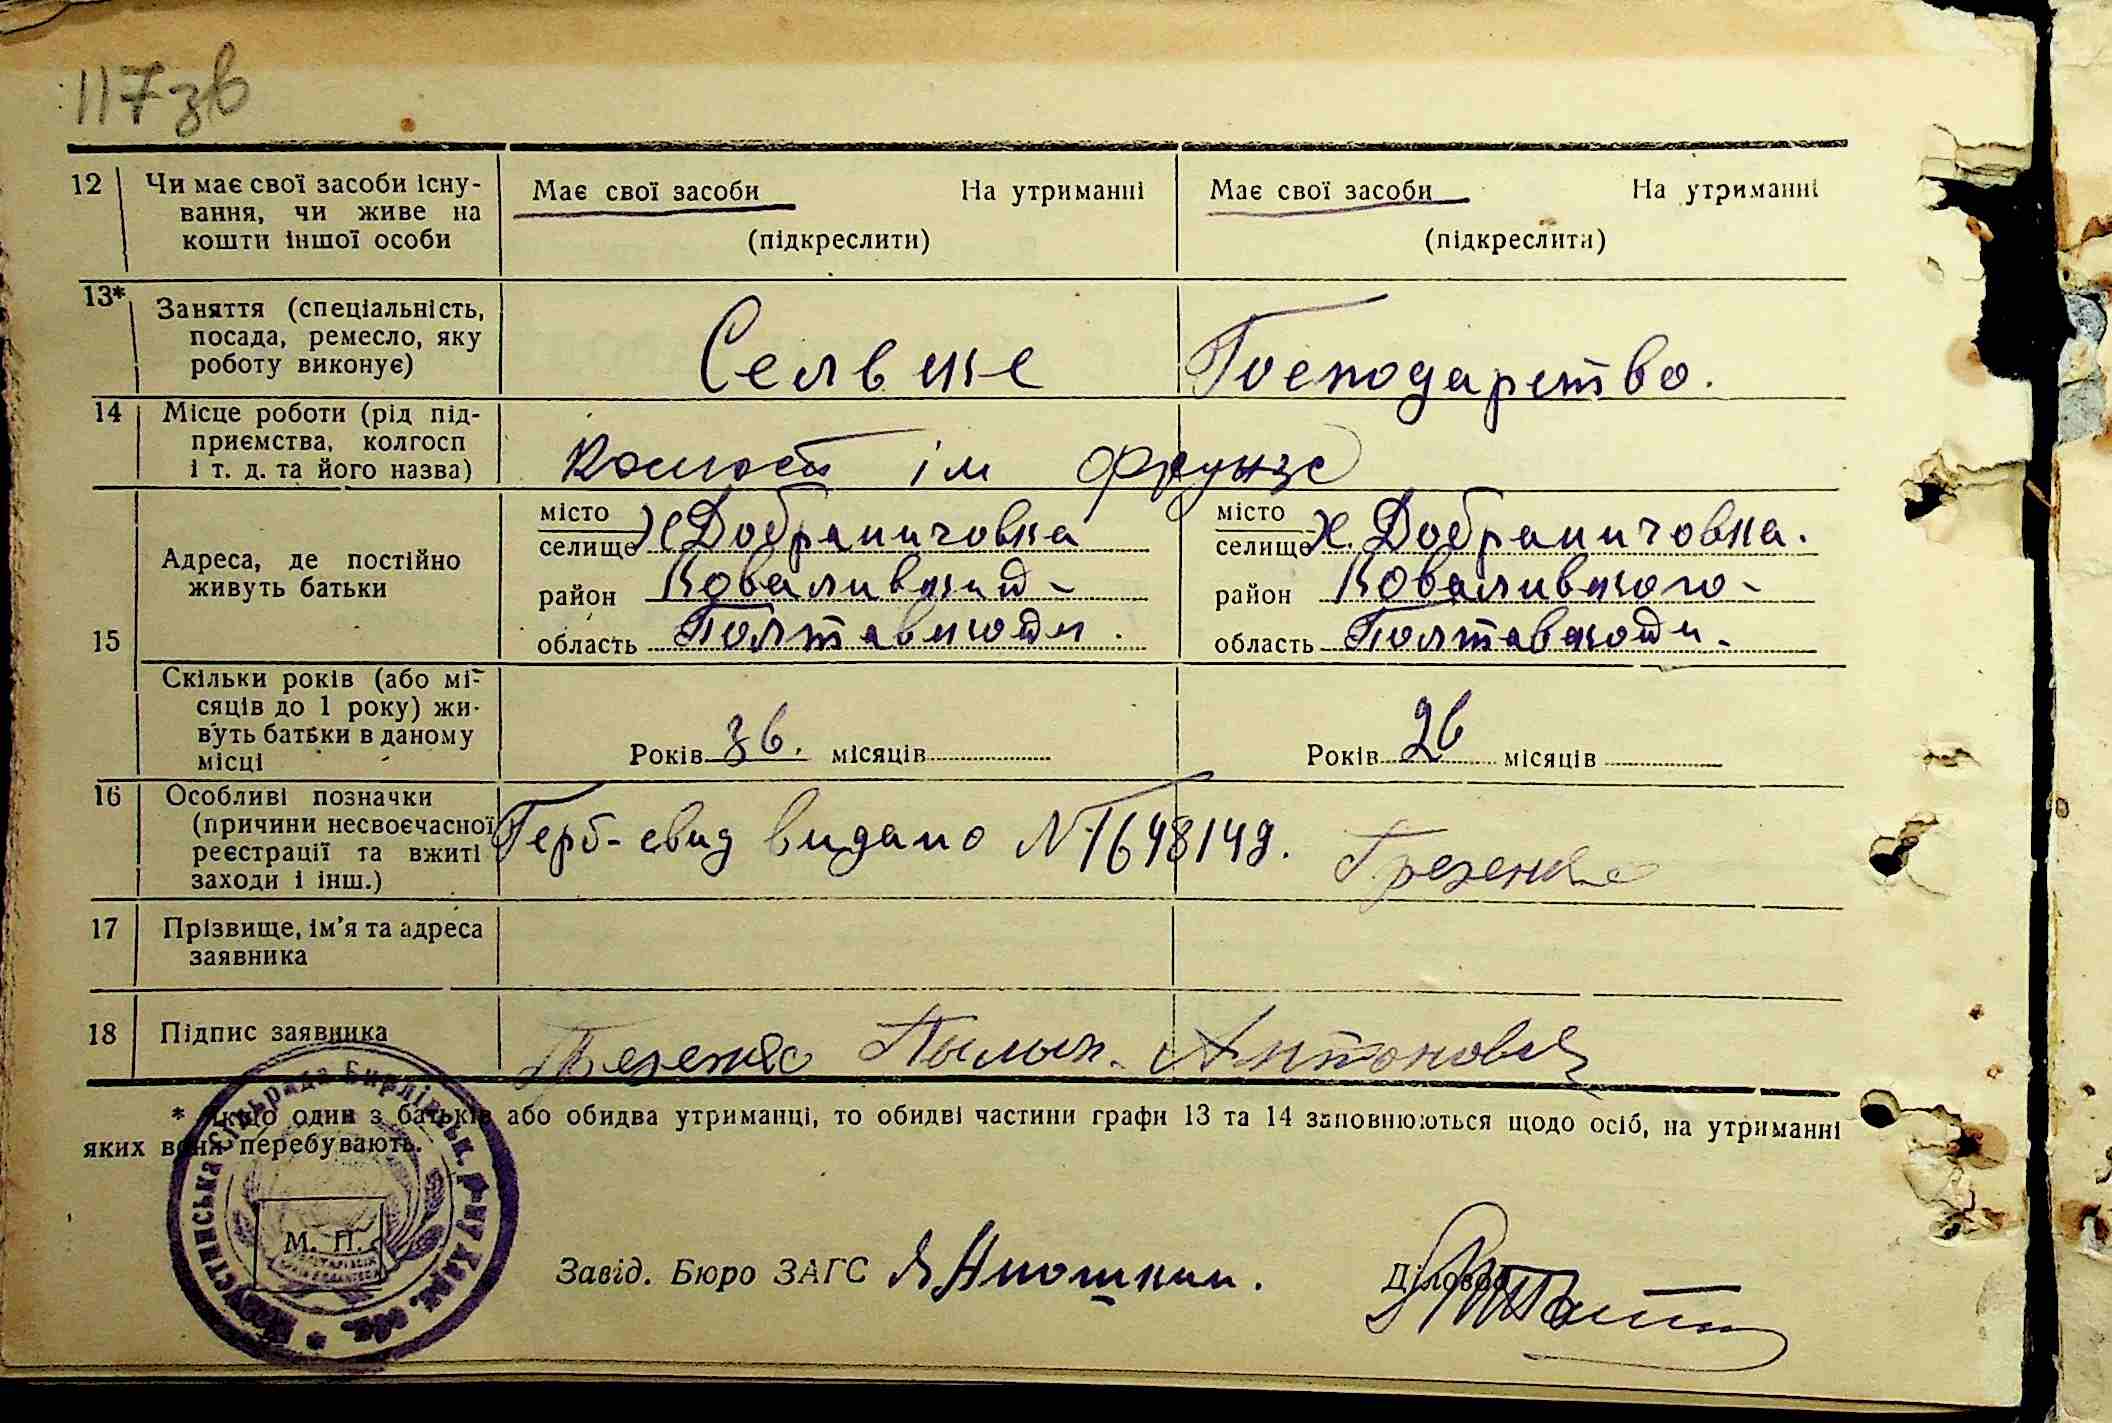 117зв
12 Чи має свої засоби існу- Має свої засоби На утриманні Має свої засоби На утриманні
вання, чи живе на
кошти іншої особи (підкреслити) (підкреслити)
13* Заняття (спеціальність,
посада, ремесло, яку
роботу виконує) Сельске Господарство.
14 Місце роботи (рід під-
приємства, колгосп
і т. д. та його назва) ім Фрунзе
місто Х Добраничовка місто Х. Добраничовка.
селище селище
15 Адреса, де постійно
живуть батьки
район район Коваливского-
область Полтавскоти. область Полтавскоти.
Скільки років (або мі-
сяців до 1 року) жи-
вуть батьки в даному
місці Років 36. місяців Років 26 місяців
16 Особливі позначки
(причини несвоєчасної
реєстрації та вжиті
заходи і інш.) Герб-свид видано №
17 Прізвище, ім'я та адреса
заявника
18 Підпис заявника Антонович
* Якщо один з батьків або обидва утриманці, то обидві частини графи 13 та 14 заповнюються щодо осіб, на утриманні
яких вони перебувають.
сільрада Бирлівськ. р-ну Харк. обл.
М. П.
Завід. Бюро ЗАГС Діловод